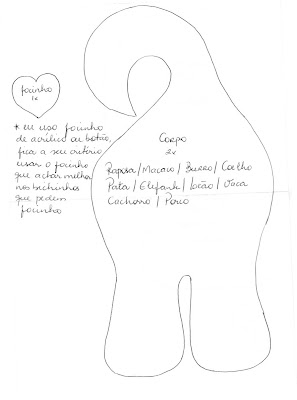 focinho
1x
* eu uso focinho
de acrílico ou botão,
fica a seu critério
usar o focinho
que achar melhor
nos bichinhos
que pedem
focinho
Corpo
2x
Raposa/Macaco/Burro/Coelho
Pata/Elefante/Leão/Vaca
Cachorro/Porco